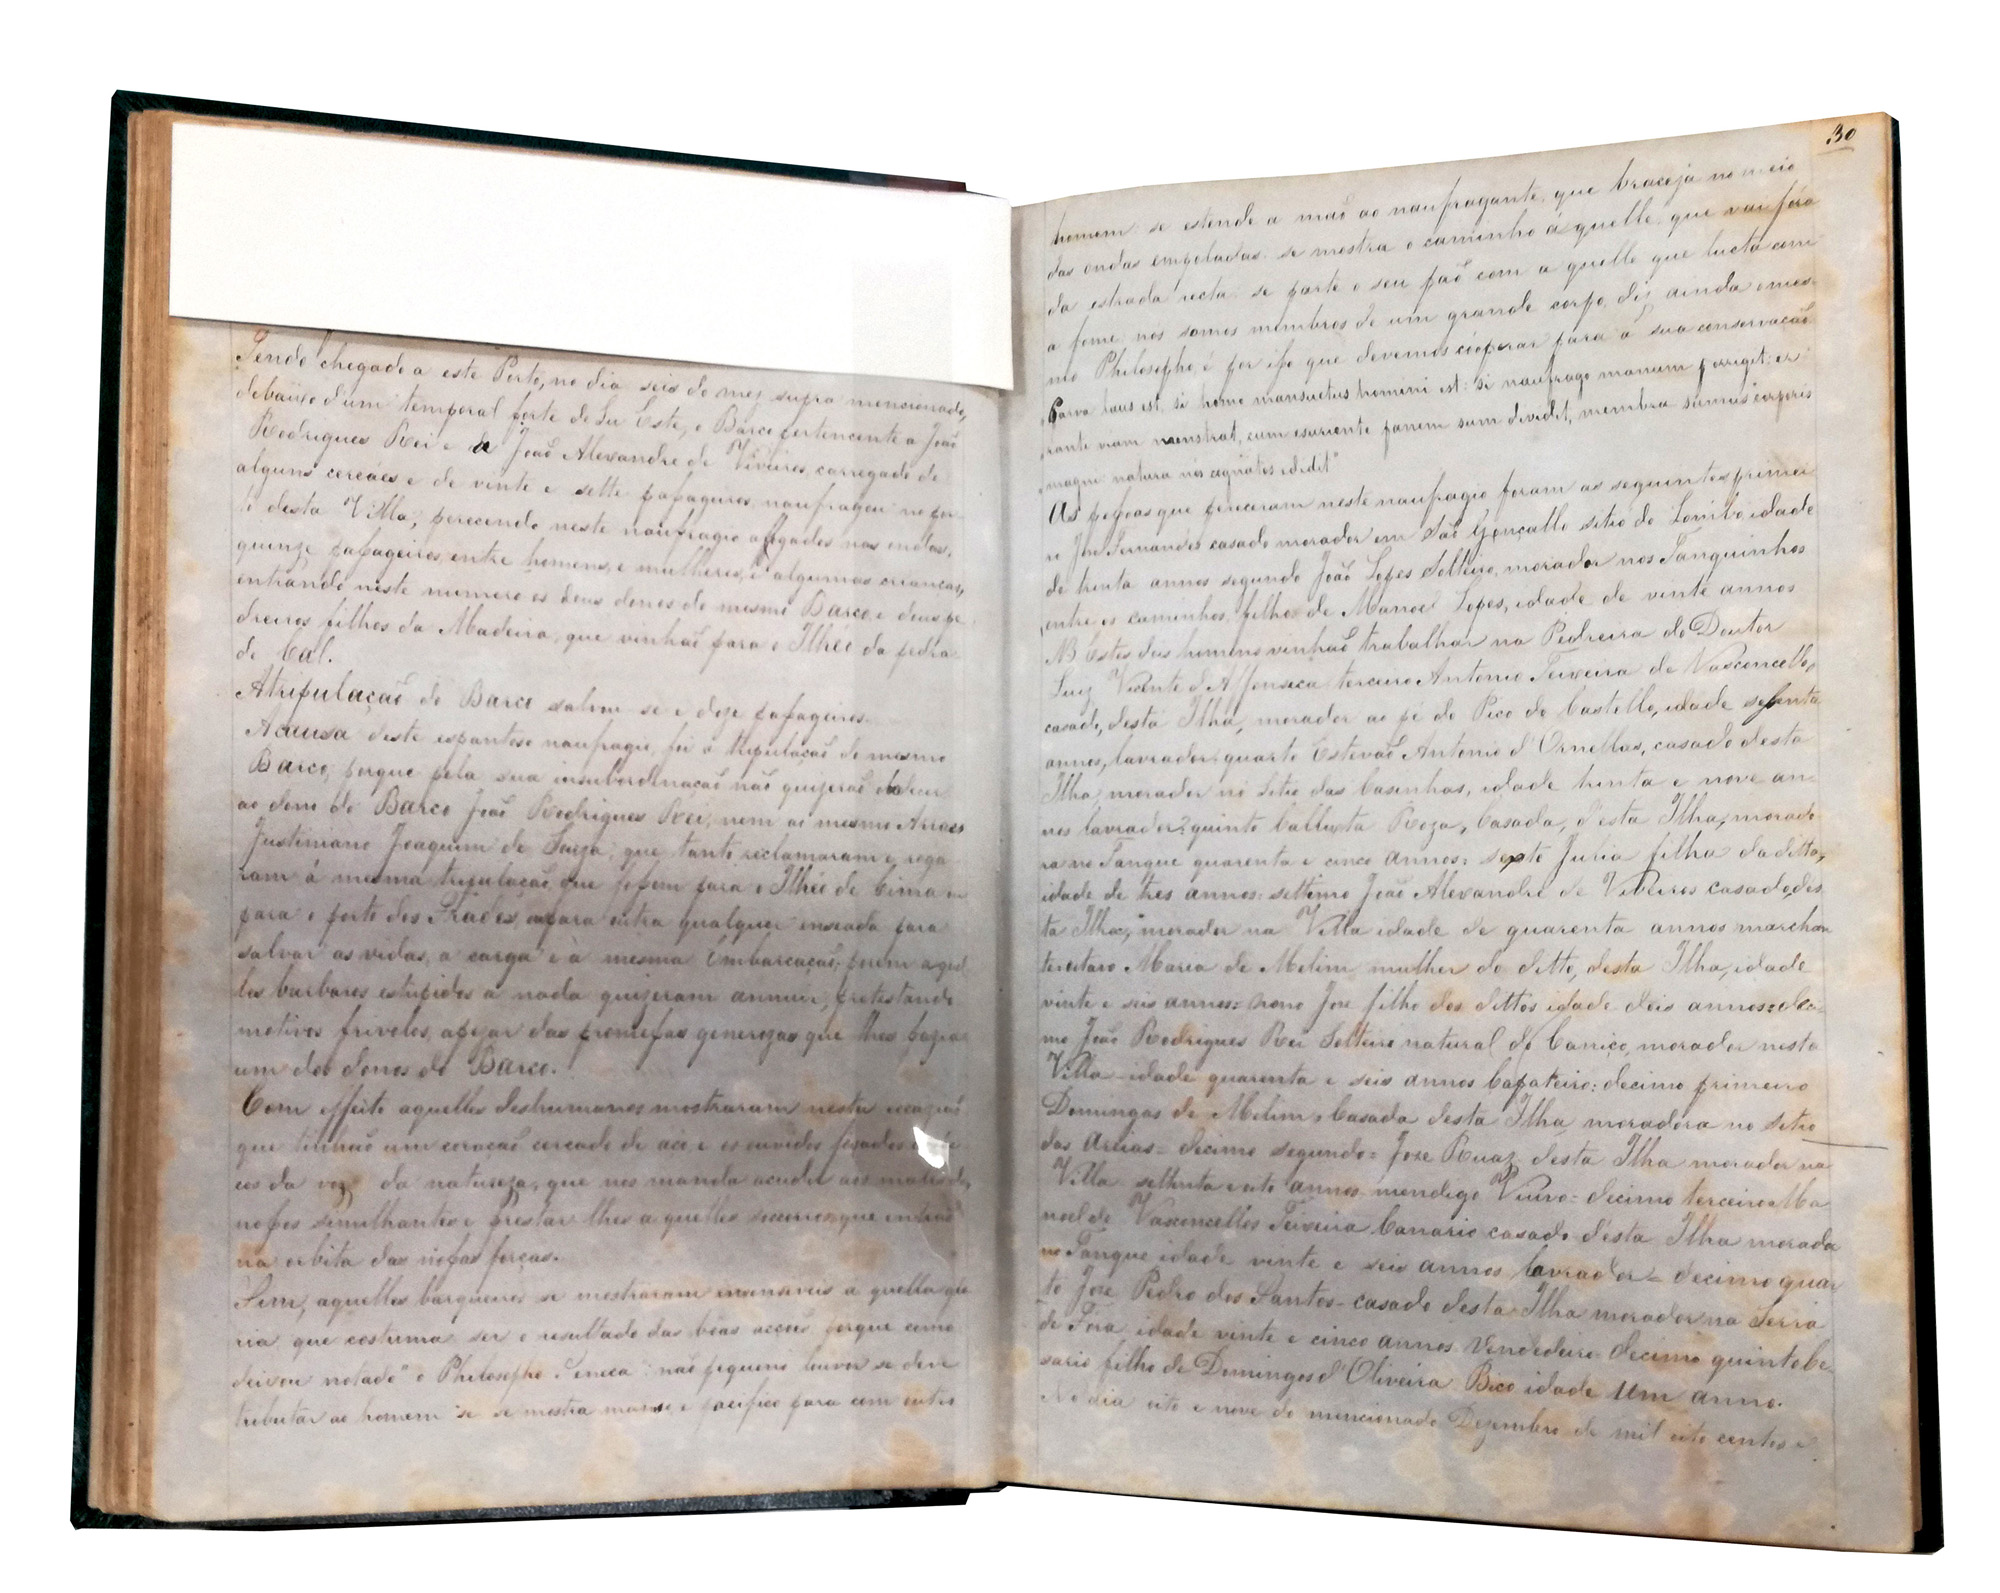 Tendo chegado a este Porto, no dia seis do mez supra mencionado,
debaixo d'um temporal forte do Su Este, o Barco pertencente a João
Rodrigues Rei e a João Alexandre de Viveiros, carregado de
alguns cereaes e de vinte e sette passageiros, naufragou no por-
to desta Villa, perecendo neste naufragio afogados nas ondas,
quinze passageiros, entre homens, e mulheres, e algumas crianças,
entrando neste numero os dous donos do mesmo Barco, e dous pe-
dreiros filhos da Madeira, que vinhaõ para o Ilhéo da pedra
de Cal.
A tripulação do Barco salvou se e doze passageiros.
A causa deste espantoso naufragio, foi a tripulação do mesmo
Barco, porque pela sua insubordinação não quizerão obdecer
ao dono do Barco João Rodrigues Rei, nem ao mesmo Arraes
Justiniano Joaquim de Souza, que tanto reclamaram e roga-
ram á mesma tripulação que fossem para o Ilhéo de Cima ou
para o porto dos Frades, ou para outra qualquer enseada para
salvar as vidas, a carga e à mesma Embarcação, porem aquel
les barbaros estupidos a nada quizeram annuir, protestando
motivos frivolos, apezar das promessas generozas que lhes fazia
um dos donos do Barco.
Com effeito aquelles deshumanos mostraram nesta occazião
que tinhão um coração cercado de aço e os ouvidos
da voz da natureza, que nos manda acudir aos males de
nossos similhantes e prestar lhes aquelles soccorros que
na orbita das nossas forças.
Sim, aquelles barqueiros se mostraram insensiveis a quella glo
ria que costuma ser o resultado das bôas acções porque como
deixou notado "o Philosopho Seneca" não pequeno louvor se deve
tributar ao homem se se mostra manso e pacifico para com outro
30
homem: se estende a mão ao naufragante, que braceja no meio
das ondas empoladas: se mostra o caminho á quelle, que vai fora
da estrada recta: se parte o seu pão com a quelle que lucta com
a fome nos somos membros de um grande corpo, diz ainda o mes-
mo Philosopho, é por isso que devemos cooperar para a sua conservação
Parva laus est, si homo mansuetus homini est: si naufrago manum porriget: er-
rante viam monstrat, cum esuriente panem suum dividit, membra sumus corporis
magni natura nos cognatos edidit"
As pessoas que pereceram neste naufragio foram as seguintes primei
ro José Fernandes casado morador em São Gonçallo sitio do Lombo, idade
de trinta annos segundo João Lopes Solteiro, morador nos Tanquinhos
entre os caminhos, filho de Manoel Lopes, idade de vinte annos
NB Estes dois homens vinhaõ trabalhar na Pedreira do Doutor
Luiz Vicente d'Affonseca terceiro Antonio Teixeira de Vasconcellos,
casado, desta Ilha, morador ao pé do Pico do Castello, idade
annos, lavrador: quarto Estevão Antonio d'Ornellas, casado desta
Ilha, morador no Sitio das Casinhas, idade trinta e nove an-
nos lavrador: quinto Callixta Roza, Casada, d'esta Ilha, morado
ra no Tanque quarenta e cinco annos: sexto Julia filha da ditta,
idade de tres annos: settimo João Alexandre de Viveiros casado, des
ta Ilha, morador na Villa idade de quarenta annos marchan
te: oitavo Maria de Melim, mulher do ditto, desta Ilha, idade
vinte e seis annos: nono Jose filho dos dittos idade dois annos: deci-
mo João Rodrigues Rei Solteiro natural do Caniço, morador nesta
Villa idade quarenta e seis annos Çapateiro: decimo primeiro
Domingas de Melim, Casada desta Ilha moradora no sitio
das Areias = decimo segundo = Joze Ruaz desta Ilha morador na
Villa settenta e oito annos mendigo Viuvo = decimo terceiro Ma
noel de Vasconcellos Teixeira Canario casado desta Ilha morada
no Tanque idade vinte e seis annos lavrador = decimo quar
to Joze Pedro dos Santos - casado desta Ilha morador na Serra
de Fora, idade vinte e cinco annos Vendedeiro decimo quinto Ce-
sario filho de Domingos d'Oliveira Bico idade um anno.
No dia oito e nove do mencionado Dezembro de mil oito centos e